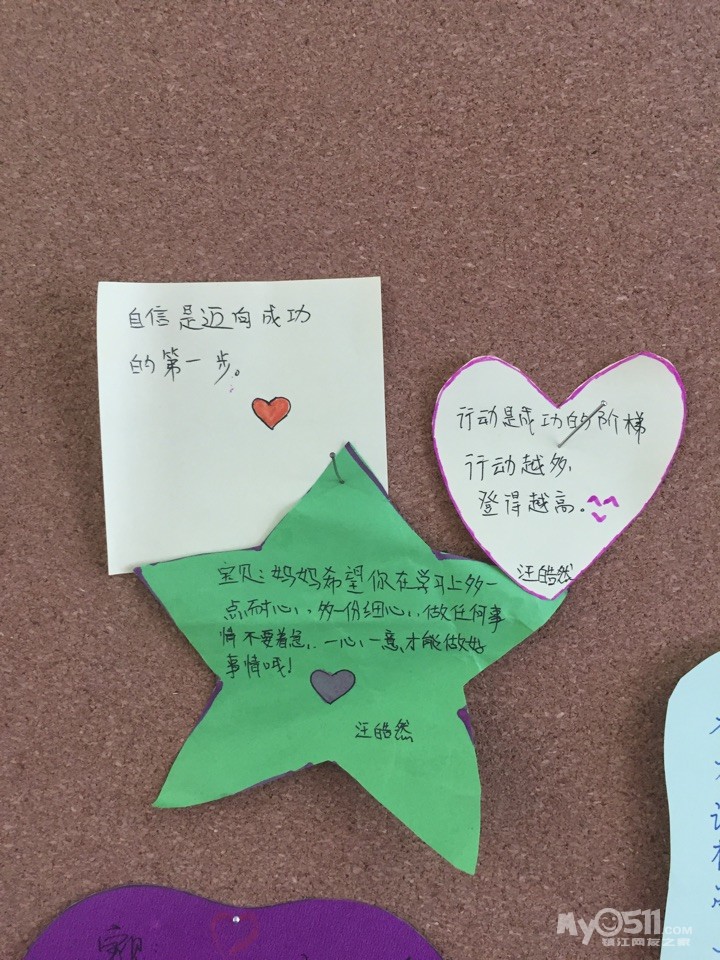 自信是迈向成功
的第一步。
行动是成功的阶梯
行动越多,
登得越高。
汪皓然
宝贝:妈妈希望你在学习上多一
点耐心,多一份细心,做任何事
情不要着急,一心一意才能做好
事情哦!
汪皓然
MyO511.COM
镇江网友之家